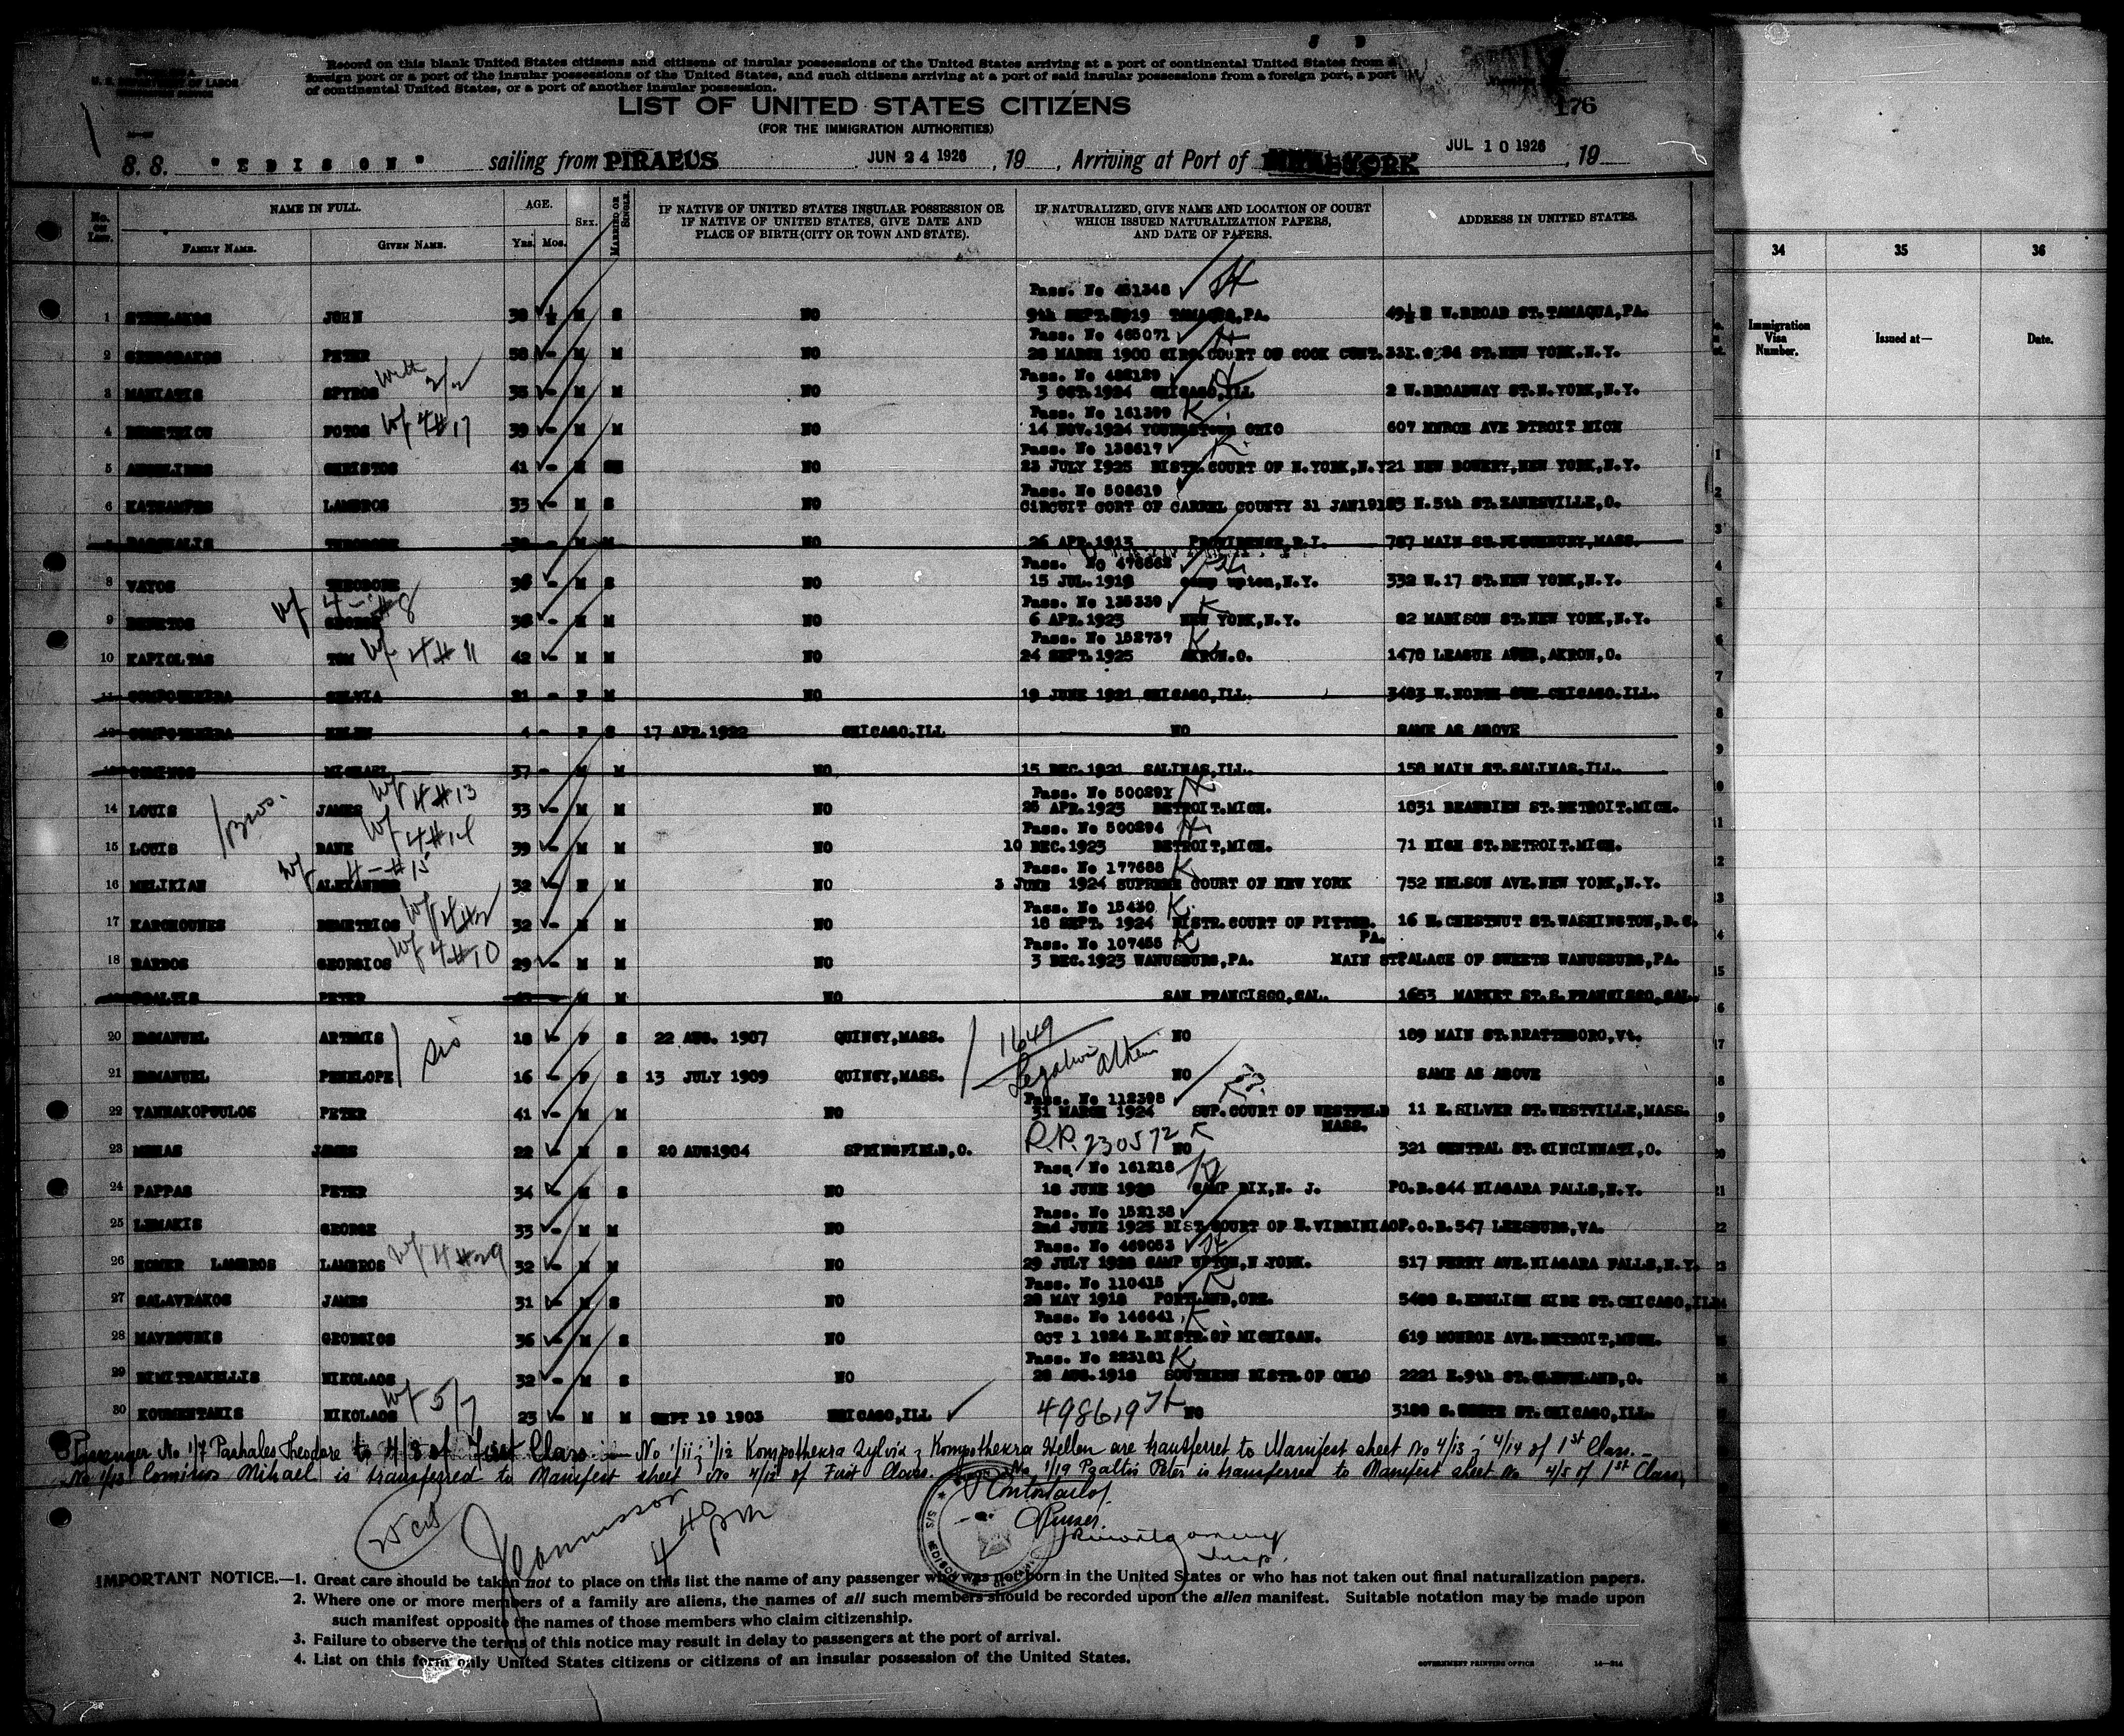 U. S. DEPARTMENT OF LABOR
Record on this blank United States citizens and citizens of insular possessions of the United States arriving at a port of continental United States from a
foreign port or a port of the insular possessions of the United States, and such citizens arriving at a port of said insular possessions from a foreign port, a port
of continental United States, or a port of another insular possession.
LIST OF UNITED STATES CITIZENS
176
(FOR THE IMMIGRATION AUTHORITIES)
S. S. "EDISON" sailing from PIRAEUS JUN 24 1926, 19 , Arriving at Port of YORK JUL 10 1926, 19
No. on List. NAME IN FULL. AGE. Sex. Married or Single. IF NATIVE OF UNITED STATES INSULAR POSSESSION OR IF NATIVE OF UNITED STATES, GIVE DATE AND PLACE OF BIRTH (CITY OR TOWN AND STATE). IF NATURALIZED, GIVE NAME AND LOCATION OF COURT WHICH ISSUED NATURALIZATION PAPERS, AND DATE OF PAPERS. ADDRESS IN UNITED STATES.
Family Name. Given Name. Yrs. Mos.
34 35 36
Immigration Visa Number. Issued at— Date.
Pass. No 451348
1 JOHN 30 ½ M S NO 9th SEPT. 1919 TAMAQUA, PA. 49½ W. BROAD ST. TAMAQUA, PA.
Pass. No 465071
2 GREGORAKOS PETER 50 - M M NO 28 MARCH 1900 CIRC. COURT OF COOK CONT. 331. ST. NEW YORK. N.Y.
Pass. No 482129
3 MANIATIS SPYROS 35 - M M NO 3 OCT. 1924 CHICAGO, ILL 2 W. BROADWAY ST. N. YORK, N.Y.
Pass. No 161399 K
4 DEMETRIOU FOTOS Wf 4#17 39 - M M NO 14 NOV. 1924 YOUNGSTOWN OHIO 607 MNROE AVE DTROIT MICH
Pass. No 138617 K
5 ANGELIDES CHRISTOS 41 - M NO 23 JULY 1925 DISTR. COURT OF N. YORK, N.Y 21 NEW BOWERY, NEW YORK, N.Y.
Pass. No 508619
6 LAMBROS 33 - M S NO CIRCUIT CORT OF CARREL COUNTY 31 JAN 191 N. 5th ST. ZANESVILLE, O.
7 PASCHALIS THEODORE M M NO 26 APR. 1913 PROVIDENCE, R.I. 787 MAIN ST. MASS.
Pass. No 476662
8 VATOS THEODORE 36 - M S NO 15 JUL. 1918 Camp Upton, N.Y. 332 W. 17 ST. NEW YORK, N.Y.
Wf 4-#8 Pass. No 135339 K
9 GEORGE 38 - M M NO 6 APR. 1923 NEW YORK, N.Y. 82 MADISON ST. NEW YORK, N.Y.
Pass. No 152737 K
10 KAPIOLTAS TOM Wf 4#11 42 - M M NO 24 SEPT. 1925 AKRON. O. 1478 LEAGUE AVER, AKRON, O.
11 COMPOTHEKRA SYLVIA 21 - F M NO 19 JUNE 1921 CHICAGO, ILL. 3403 W. NORTH AVE CHICAGO. ILL.
12 COMPOTHEKRA HELEN 4 - F S 17 APR. 1922 CHICAGO, ILL NO SAME AS ABOVE
13 COMINOS MICHAEL 37 - M M NO 15 DEC. 1921 SALINAS, ILL. 158 MAIN ST. SALINAS, ILL.
Pass. No 500291
14 LOUIS Bros. JAMES Wf 4#13 33 - M M NO 25 APR. 1923 DETROIT. MICH. 1031 BEAUBIEN ST. DETROIT. MICH.
Pass. No 500294
15 LOUIS DANE Wf 4#14 39 - M M NO 10 DEC. 1923 DETROIT, MICH. 71 HIGH ST. DETROIT. MICH.
Wf 4-#15 Pass. No 177688 K
16 MELIKIAN ALEXANDER 32 - F M NO 3 JUNE 1924 SUPREME COURT OF NEW YORK 752 NELSON AVE. NEW YORK, N.Y.
Pass. No 15430 K
17 KARCHOUNES DEMETRIOS 32 - M M NO 18 SEPT. 1924 DISTR. COURT OF PITTSB. PA. 16 E. CHESTNUT ST. WASHINGTON, D.C.
Pass. No 107455 K
18 BARBOS GEORGIOS Wf 4#10 29 - M M NO 3 DEC. 1923 WANUSBURG, PA. MAIN ST PALACE OF SWEETS WANUSBURG, PA.
19 PSALTIS PETER M M NO SAN FRANCISCO, CAL. 1653 MARKET ST. S. FRANCISCO, CAL.
20 EMMANUEL ARTEMIS 18 - F S 22 AUG. 1907 QUINCY, MASS. 1649 NO 189 MAIN ST. BRATTEBORO, Vt.
Sis Legation Athens
21 EMMANUEL PENELOPE 16 - F S 13 JULY 1909 QUINCY, MASS. NO SAME AS ABOVE
Pass. No 112398
22 YANNAKOPOULOS PETER 41 - M M NO 31 MARCH 1924 SUP. COURT OF WESTFELD MASS. 11 E. SILVER ST. WESTVILLE, MASS.
R.P. 230572 K
23 MENAS JAMES 22 - M S 20 AUG 1904 SPRINGFIELD, O. NO 321 CENTRAL ST. CINCINNATI, O.
Pass. No 161218
24 PAPPAS PETER 34 - M S NO 18 JUNE 1928 CAMP DIX, N. J. PO. B. 844 NIAGARA FALLS, N.Y.
Pass. No 152138
25 LEMAKIS GEORGE 33 - M M NO 2nd JUNE 1925 DIST COURT OF W. VIRGINIA P. O. B. 547 LEESBURG, VA.
Pass. No 469053
26 HOMER LAMBROS LAMBROS Wf 4#29 32 - M M NO 29 JULY 1928 CAMP UPTON, N YORK. 517 FERRY AVE. NIAGARA FALLS, N.Y.
Pass. No 110415 K
27 SALAVRAKOS JAMES 31 - M S NO 28 MAY 1918 PORTLAND, ORE. 5488 S. ENGLISH SIDE ST. CHICAGO, ILL
Pass. No 146641 K
28 MAVROUDIS GEORGIOS 36 - M S NO OCT 1 1924 E. DISTR. OF MICHIGAN. 619 MONROE AVE. DETROIT, MICH.
Pass. No 223181 K
29 DIMITRAKELLIS NIKOLAOS 32 - M S NO 28 AUG. 1918 SOUTHERN DISTR. OF OHIO 2221 E. 9th ST. CLEVELAND, O.
Wf 5/7
30 KOUMENTAKIS NIKOLAOS 23 - M M SEPT 19 1903 CHICAGO, ILL 498619 NO 3180 S. ST. CHICAGO, ILL.
Passenger No 1/7 Pashales Theodore to 4/3 of First Class — No 1/11; 1/12 Kompothekra Sylvia; Kompothekra Hellen are transferret to Manifest sheet No 4/13; 4/14 of 1st Class.—
No 1/13 Cominos Mihael is transferred to Manifest sheet No 4/12 of First Class. No 1/19 Psaltis Peter is transferred to Manifest sheet No 4/5 of 1st Class,
25 cits
4 40 pm
Purser
Montgomery
Insp.
IMPORTANT NOTICE.—1. Great care should be taken not to place on this list the name of any passenger who was not born in the United States or who has not taken out final naturalization papers.
2. Where one or more members of a family are aliens, the names of all such members should be recorded upon the alien manifest. Suitable notation may be made upon
such manifest opposite the names of those members who claim citizenship.
3. Failure to observe the terms of this notice may result in delay to passengers at the port of arrival.
4. List on this form only United States citizens or citizens of an insular possession of the United States.
GOVERNMENT PRINTING OFFICE